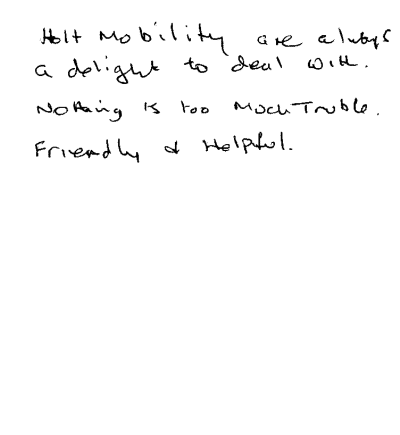 Holt Mobility are always
a delight to deal with.
Nothing is too much Truble.
Friendly & Helpful.